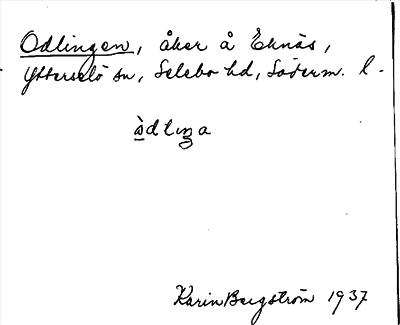 Odlingen, åker å Eknäs,
Ytterselö sn, Selebo hd, Söderm. l.
òdlıŋa
Karin Bergström 1937